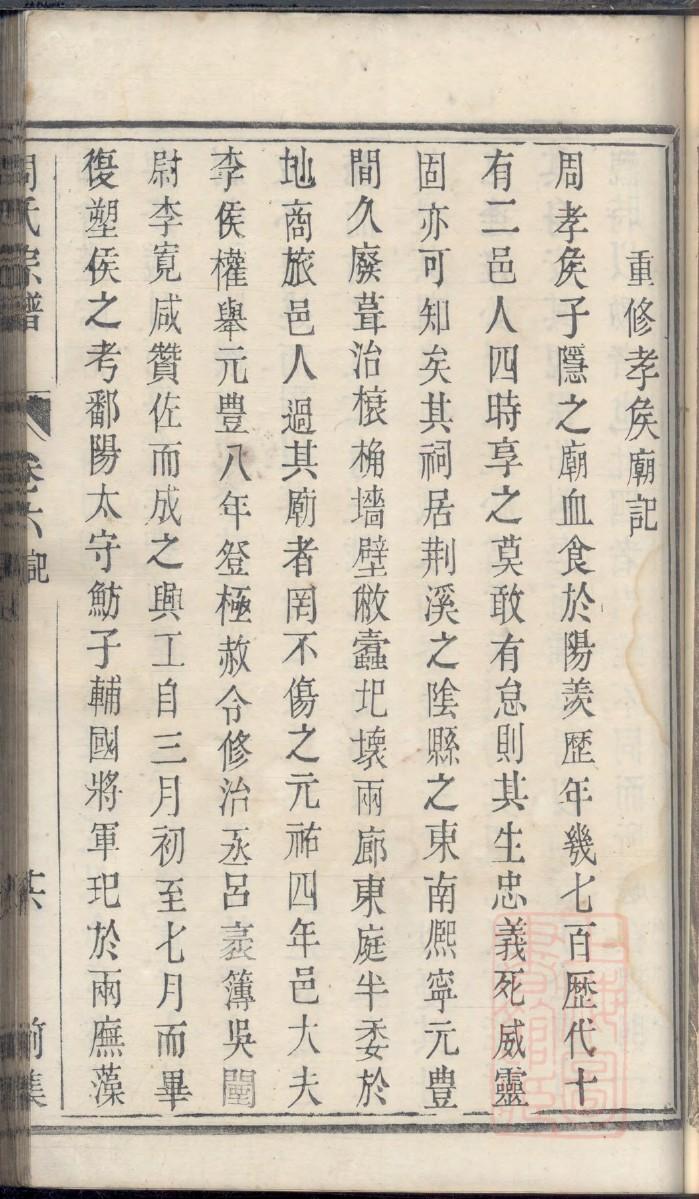 重修孝侯廟記
周孝侯子隱之廟血食於陽羨歷年幾七百歷代十
有二邑人四時享之莫敢有怠則其生忠義死威靈
固亦可知矣其祠居荆溪之陰縣之東南熈寧元豊
間久廢葺治榱桷墻壁敝蠹圯壊兩廊東庭半委於
地商旅邑人過其廟者罔不傷之元祐四年邑大夫
李侯權舉元豊八年登極赦令修治丞呂袠簿吳闉
尉李寛咸贊佐而成之興工自三月初至七月而畢
復塑侯之考鄱陽太守魴子輔國將軍玘於兩廡藻
周氏宗譜 卷六 記 共 前集